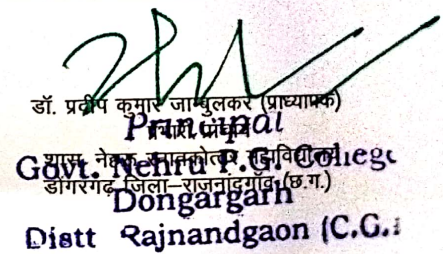 डॉ. प्रदीप कुमार जाम्बुलकर (प्राध्यापक)
Principal
प्रभारी प्राचार्य
शास. नेहरू स्नातकोत्तर महाविद्यालय
Govt. Nehru P.G. College
डोंगरगढ़ जिला–राजनांदगाँव (छ.ग.)
Dongargarh
Distt Rajnandgaon (C.G.